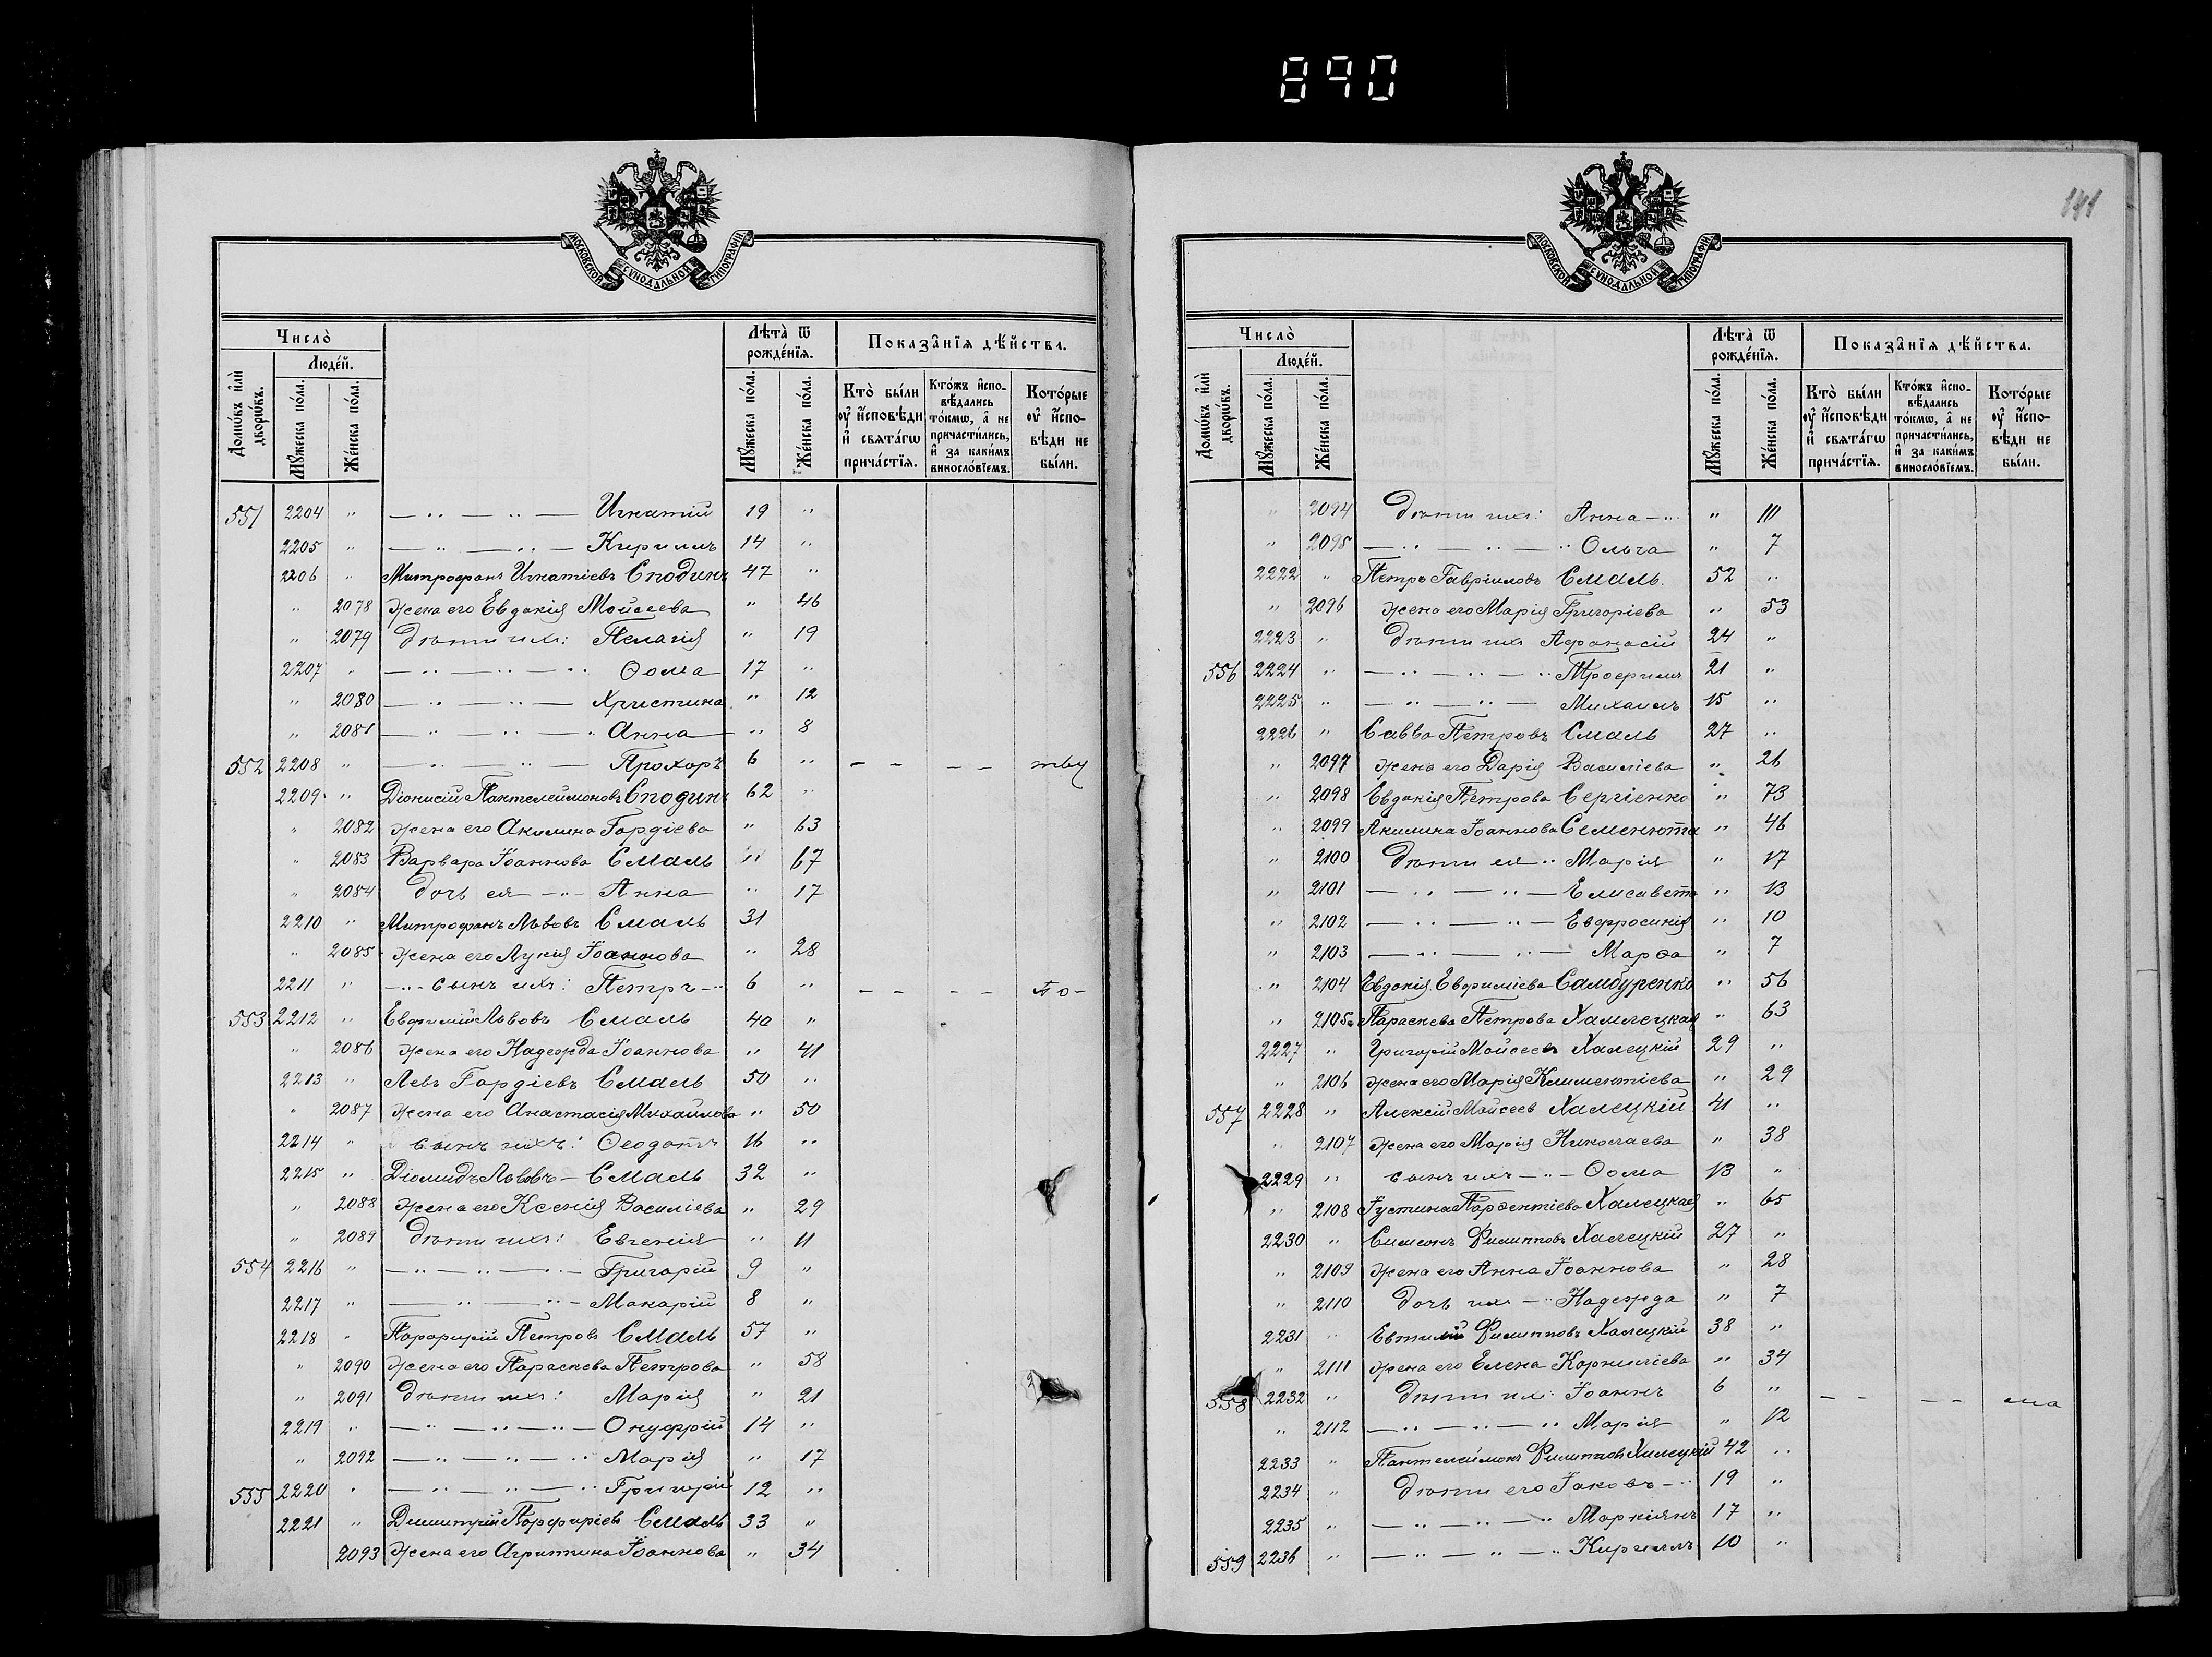 890
МОСКОВСКОЙ СѴНОДАЛЬНОЙ ТИПОГРАФІИ
Число̀
Людей.
Домѡвъ и҆лѝ дворѡвъ.
Мꙋжеска по́ла.
Же́нска по́ла.
Лѣта̀ ѿ рожде́нїѧ.
Мꙋжеска по́ла.
Же́нска по́ла.
Показа̑нїѧ дѣ́йства.
Кто̀ бы́ли оу҆ и҆́сповѣди и҆ свѧта́гѡ прича́стїѧ.
Кто́жъ и҆спо-вѣ́дались то́кмѡ, а҆ не причасти́лись, и҆ за каки́мъ виносло́вїемъ.
Кото́рые оу҆ и҆́спо-вѣди не бы́ли.
551 2204 " — " — " — Игнатій 19 "
2205 " — " — " — Кириллъ 14 "
2206 " Митрофанъ Игнатіевъ Сподинъ 47 "
" 2078 Жена его Евдокія Моисеева " 46
" 2079 Дѣти ихъ: Пелагія " 19
2207 " — " — " — " Ѳома 17 "
" 2080 — " — " — Христина " 12
" 2081 — " — " — " Анна " 8
552 2208 " — " — " — Прохоръ 6 " — — — — тву
2209 " Діонисій Пантелеймоновъ Сподинъ 62 "
" 2082 Жена его Акилина Гордіева " 63
" 2083 Варвара Іоаннова Смаль " 67
" 2084 дочь ея — " — Анна " 17
2210 " Митрофанъ Львовъ Смаль 31
" 2085 Жена его Лукія Іоаннова " 28
2211 " — " — сынъ ихъ: Петръ — " 6 " — — — — По-
553 2212 " Евфимій Львовъ Смаль 40 "
" 2086 Жена его Надежда Іоаннова " 41
2213 " Левъ Гордіевъ Смаль 50 "
" 2087 Жена его Анастасія Михайлова " 50
2214 " сынъ ихъ: Ѳеодотъ 16 "
2215 " Діомидъ Львовъ — Смаль 32 "
" 2088 Жена его Ксенія Василіева " 29
" 2089 Дѣти ихъ: Евгенія " 11
554 2216 " — " — " — " — Григорій 9 "
2217 " — " — " — Макарій 8 "
2218 " Порфирій Петровъ Смаль 57 "
" 2090 Жена его Параскева Петрова " 58
" 2091 Дѣти ихъ: Марія " 21
2219 " — " — " — " — Онуфрій 14 "
" 2092 — " — " — " Марія " 17
555 2220 " — " — " — " Григорій 12 "
2221 " Димитрій Порфиріевъ Смаль 33 "
2093 Жена его Агрипина Іоаннова " 34
141
МОСКОВСКОЙ СѴНОДАЛЬНОЙ ТИПОГРАФІИ
Число̀
Людей.
Домѡвъ и҆лѝ дворѡвъ.
Мꙋжеска по́ла.
Же́нска по́ла.
Лѣта̀ ѿ рожде́нїѧ.
Мꙋжеска по́ла.
Же́нска по́ла.
Показа̑нїѧ дѣ́йства.
Кто̀ бы́ли оу҆ и҆́сповѣди и҆ свѧта́гѡ прича́стїѧ.
Кто́жъ и҆спо-вѣ́дались то́кмѡ, а҆ не причасти́лись, и҆ за каки́мъ виносло́вїемъ.
Кото́рые оу҆ и҆́спо-вѣди не бы́ли.
" 2094 Дѣти ихъ: Анна — " " 10
" 2095 — " — " — " Ольга " 7
2222 " Петръ Гавріиловъ Смаль. 52 "
" 2096 Жена его Марія Григоріева " 53
2223 " Дѣти ихъ Афанасій 24 "
556 2224 " — " — " — " Трофимъ 21 "
2225 " — " — " — Михаилъ 15 "
2226 " Савва Петровъ Смаль 27 "
" 2097 Жена его Дарія Василіева " 26
" 2098 Евдокія Петрова Сергіенко " 73
" 2099 Акилина Іоаннова Семенюта " 46
" 2100 Дѣти ея " Марія " 17
" 2101 — " — " — Елисавета " 13
" 2102 — " — " — Евфросинія " 10
" 2103 — " — " — Марѳа " 7
" 2104 Евдокія Евфиміева Самбуренко " 56
" 2105 Параскева Петрова Халецкая " 63
2227 " Григорій Моисеевъ Халецкій 29 "
" 2106 Жена его Марія Климентіева " 29
557 2228 " Алексій Моисеев Халецкій 41 "
" 2107 Жена его Марія Николаева " 38
2229 " сынъ ихъ — " — Ѳома 13 "
" 2108 Іустина Парѳентіева Халецкая " 65
2230 " Симеонъ Филипповъ Халецкій 27 "
" 2109 Жена его Анна Іоаннова " 28
" 2110 дочь ихъ — " Надежда " 7
2231 " Евтихій Филипповъ Халецкій 38 "
" 2111 Жена его Елена Корниліева " 34
558 2232 " Дѣти ихъ: Іоаннъ 6 " — — — — ма
" 2112 — " — " — " Марія " 12
2233 " Пантелеймонъ Филипповъ Халецкій 42 "
2234 " Дѣти его Іаковъ — " 19 "
2235 " — " — " — " Маркіянъ 17 "
559 2236 " — " — " — " Кириллъ 10 "